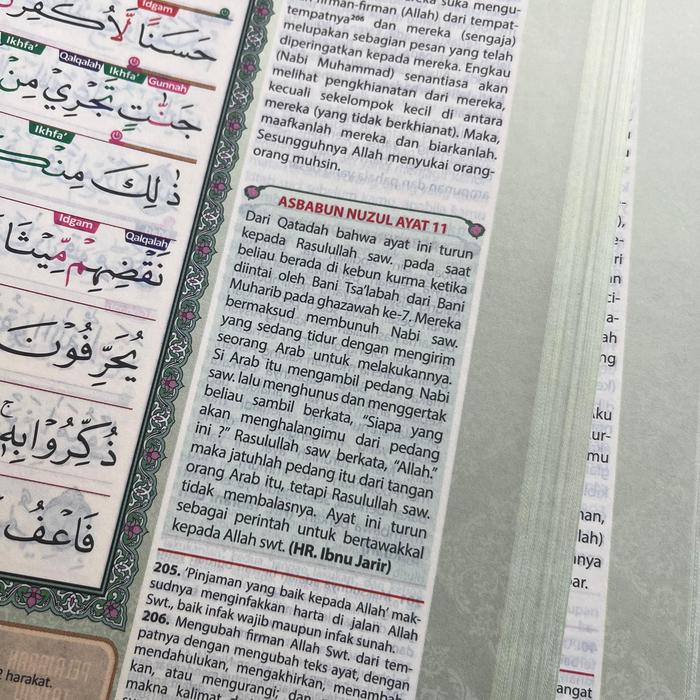 Idgam
حَسَنًا لَّأُكَفِّرَ
Ikhfa' Qalqalah Ikhfa' Gunnah
جَنّٰتٍ تَجْرِيْ مِنْ
Ikhfa'
ذٰلِكَ مِنْكُ
Idgam Qalqalah
نَقْضِهِمْ مِّيْثَا
يُحَرِّفُوْنَ
ذُكِّرُوْا بِهٖ
فَاعْفُ
2 harakat.
suka mengu-
firman-firman (Allah) dari tempat-
tempatnya²⁰⁶ dan mereka (sengaja)
melupakan sebagian pesan yang telah
diperingatkan kepada mereka. Engkau
(Nabi Muhammad) senantiasa akan
melihat pengkhianatan dari mereka,
kecuali sekelompok kecil di antara
mereka (yang tidak berkhianat). Maka,
maafkanlah mereka dan biarkanlah.
Sesungguhnya Allah menyukai orang-
orang muhsin.
ASBABUN NUZUL AYAT 11
Dari Qatadah bahwa ayat ini turun
kepada Rasulullah saw. pada saat
beliau berada di kebun kurma ketika
diintai oleh Bani Tsa'labah dari Bani
Muharib pada ghazawah ke-7. Mereka
bermaksud membunuh Nabi saw.
yang sedang tidur dengan mengirim
seorang Arab untuk melakukannya.
Si Arab itu mengambil pedang Nabi
saw. lalu menghunus dan menggertak
beliau sambil berkata, "Siapa yang
akan menghalangimu dari pedang
ini ?" Rasulullah saw berkata, "Allah."
maka jatuhlah pedang itu dari tangan
orang Arab itu, tetapi Rasulullah saw.
tidak membalasnya. Ayat ini turun
sebagai perintah untuk bertawakkal
kepada Allah swt. (HR. Ibnu Jarir)
205. 'Pinjaman yang baik kepada Allah' mak-
sudnya menginfakkan harta di jalan Allah
Swt., baik infak wajib maupun infak sunah.
206. Mengubah firman Allah Swt. dari tem-
patnya dengan mengubah teks ayat, dengan
mendahulukan, mengakhirkan, menambah-
kan, atau mengurangi; dan
makna kalimat